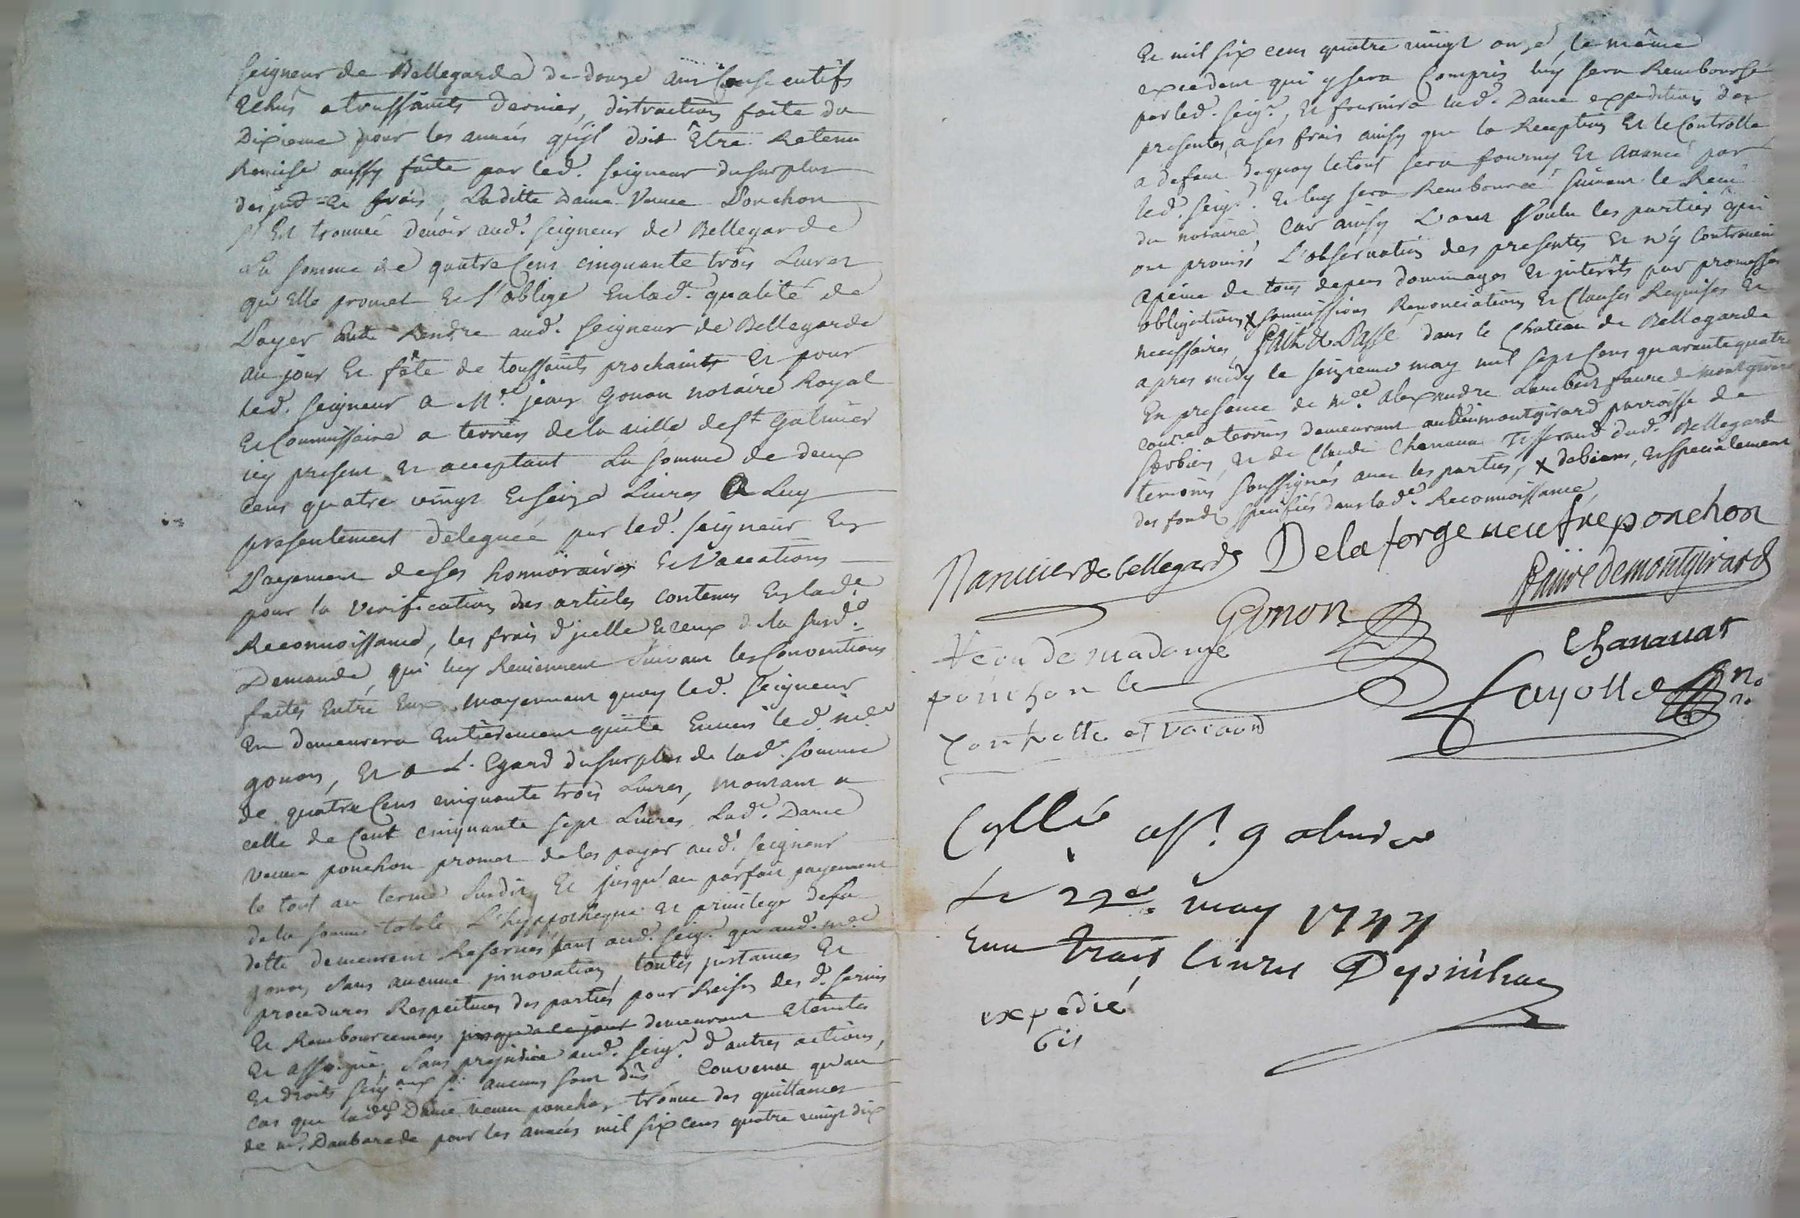 seigneur de Bellegarde de douze ans consecutifs
Echus a toussaints dernier, distraction faite du
Dixieme pour les années qu'il doit Etre Retenu
Remise aussy faite par led. seigneur du surplus
des et frais, Laditte Dame Veuve Ponchon
s'Est trouvée devoir aud. seigneur de Bellegarde
La somme de quatre Cens cinquante trois Livres
qu'Elle promet Et s'oblige En lad. qualité de
Payer Et Rendre aud. seigneur de Bellegarde
au jour Et fête de toussaints prochaint Et pour
led. seigneur a Me. jean Gonon notaire Royal
Et Commissaire a terriers de la ville de St. Galmier
icy present Et acceptant La somme de deux
Cens quatre vingt Et seize Livres a Luy
presentement deleguée par led. seigneur En
Payement de ses honnoraires Et Vaccations
pour la verification des articles contenus En lade.
Reconnoissance, les frais d'jcelle Et ceux de la susde.
Demande, qui luy Reviennent suivant les Conventions
faites Entre Eux, moyennant quoy led. seigneur
En demeurera Entierement quitte Envers led. me.
gonon, Et a L'Egard du surplus de lad. somme
de quatre Cens cinquante trois Livres, montant a
celle de Cent cinquante sept Livres, Lade. Dame
veuve ponchon promet de les payer aud. seigneur
le tout au terme susdit, Et jusqu'au parfait payement
de la somme totale L'hyppotheque Et privilege de sa
dette demeurent Reservés, tant aud. seigr. que aud. me.
gonon, sans aucune jnnovation, toutes jnstances Et
procedures Respectives des parties pour Raison des d. servis
Et Remboursemens jusqu'a ce jour demeurant Eteintes
Et assoupie, sans prejudice aud. seigr. d'autres actions,
Et droits seigaux. si aucuns sont dûs Convenu qu'au
cas que lade. Dame veuve ponchon trouve des quittances
de mr. Daubarede pour les années mil six cens quatre vingt dix
Et mil six cens quatre vingt onze, le même
excedent qui y sera Compris luy sera Remboursé
par led. seigr., Et fournira lad. Dame expedition des
presentes, a ses frais ainsy que la Reception Et le Controlle
a defaut dequoy letout sera fourny Et avancé par
led. seigr. Et luy sera Remboursé suivant le Reçu
du notaire, Car ainsy L'ont Voulu les parties qui
ont promis L'observation des presentes Et n'y Contrevenir
apeine de tous depens dommages Et jnterêts par promesses
obligations X soumissions Renonciations Et Clauses Requises Et
necessaires, fait & Passé dans le Chateau de Bellegarde
apres midy le seizieme may mil sept Cens quarante quatre
En presence de mre. alexandre Lambert faure de montgirard
comre. a terriers demeurant audit montgirard parroisse de
sorbiers, et de Claude Chanavat Tisserand dud. Bellegarde
temoins soussignés avec les parties, X de biens, Et specialement
des fonds specifiés dans lade. Reconnoissance
Naruier de bellegarde Delaforge veufve ponchon
faure demontgirard
Gonon
Chanavat
Veau de madame
ponchon la
fayolle no.
Controllé a St. galmier
Le 22e. may 1744
trois livres Depinhac
expedié
bis